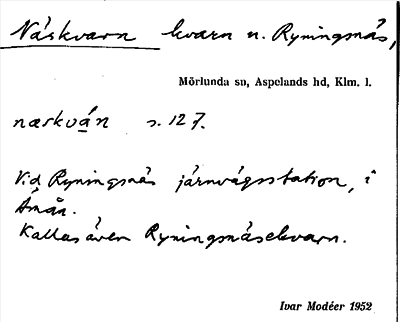 Näskvarn kvarn n. Ryningsnäs,
Mörlunda sn, Aspelands hd, Klm. l.
næskván s. 127.
Vid Ryningsnäs järnvägsstation, i
Åmån.
Kallas även Ryningsnäsekvarn.
Ivar Modéer 1952